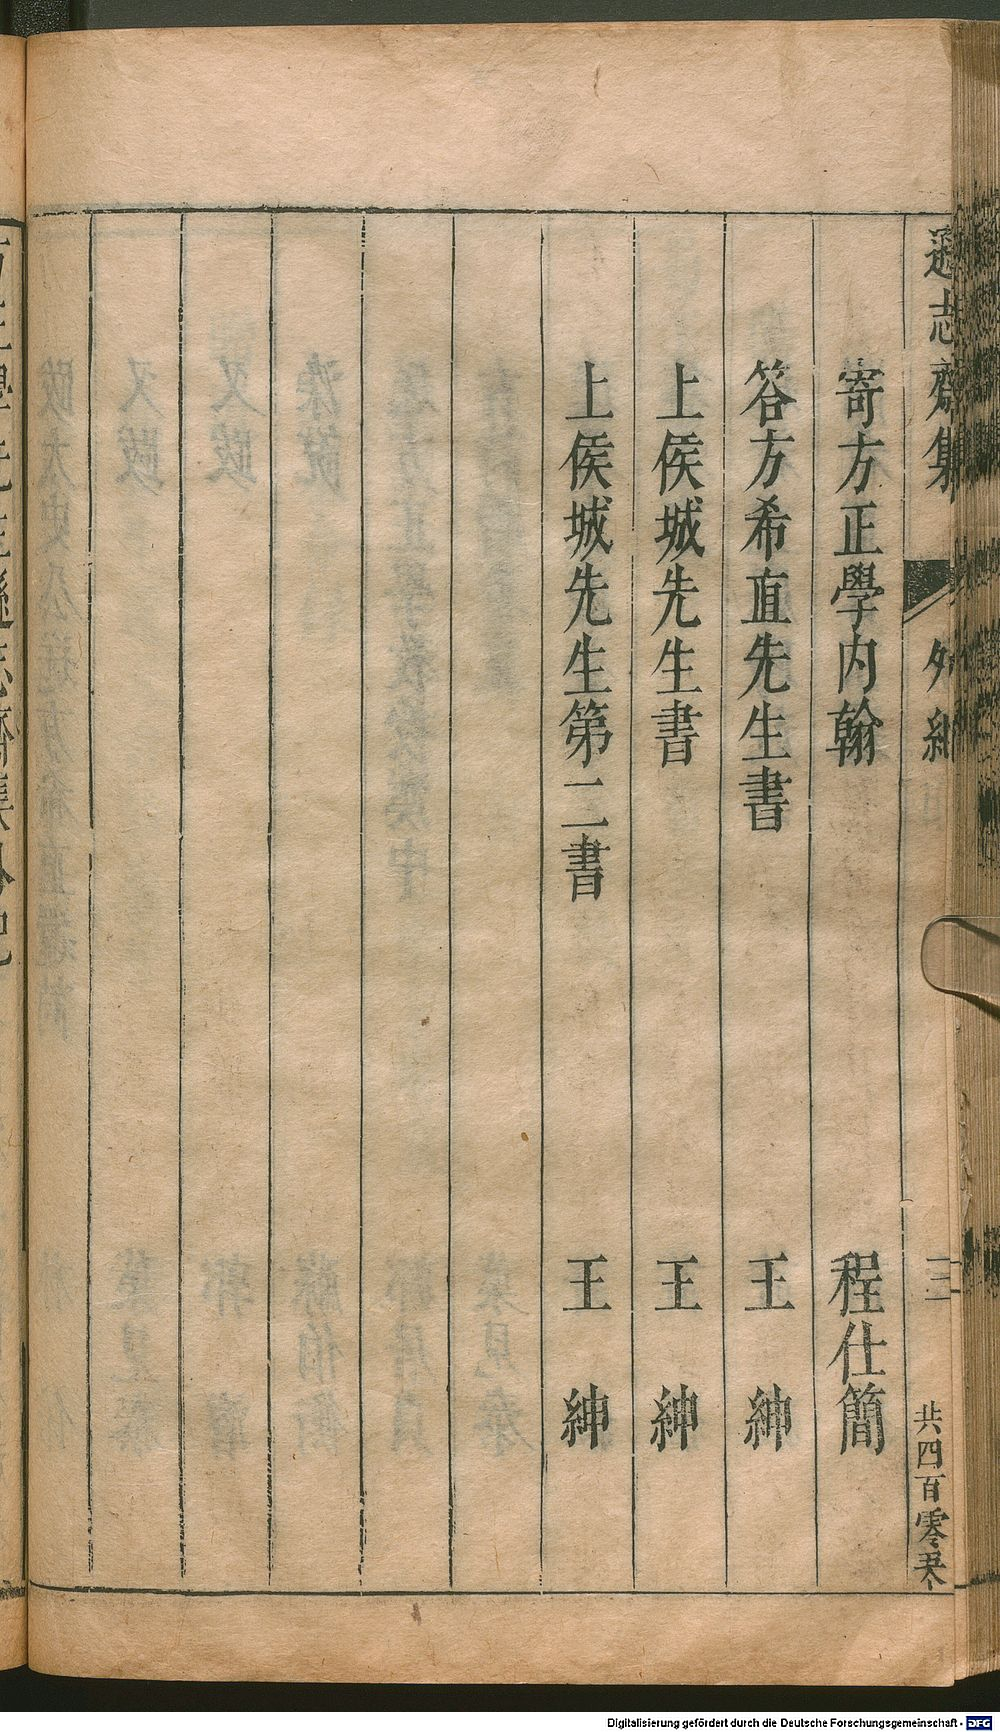 遜志齋集
外紀
三
共四百零
寄方正學內翰 程仕簡
答方希直先生書 王紳
上侯城先生書 王紳
上侯城先生第二書 王紳
Digitalisierung gefördert durch die Deutsche Forschungsgemeinschaft - DFG